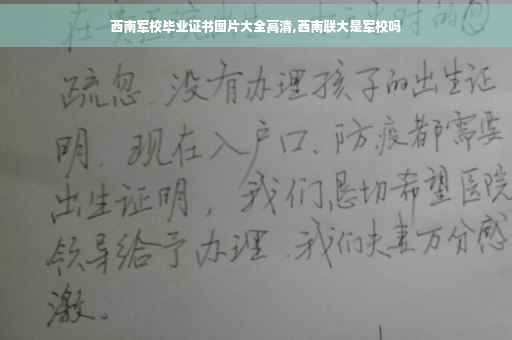 西南军校毕业证书图片大全高清,西南联大是军校吗
疏忽、没有办理孩子的出生证
明、现在入户口、防疫都需要
出生证明，我们恳切希望医院
领导给予办理、我们夫妻万分感
激。